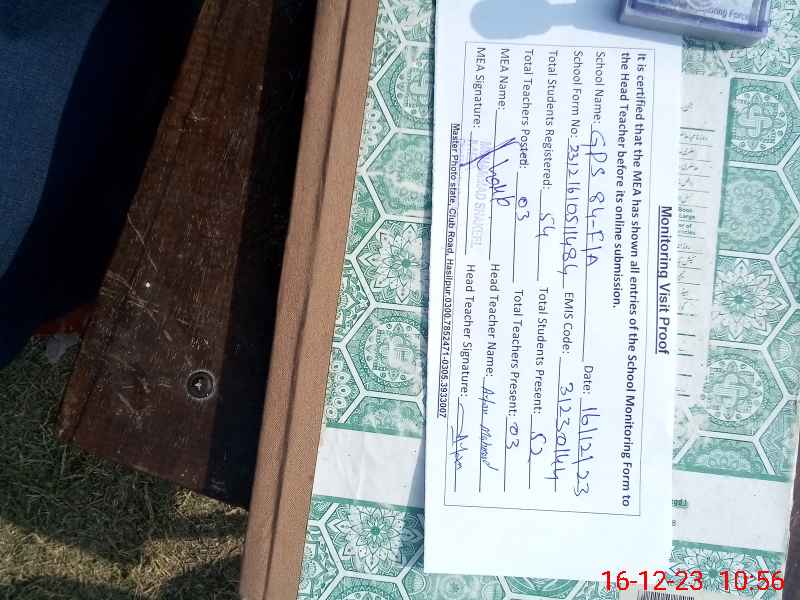 Monitoring Visit Proof
It is certified that the MEA has shown all entries of the School Monitoring Form to
the Head Teacher before its online submission.
School Name: GPS 84-F/A Date: 16/12/23
School Form No: 23121610511484 EMIS Code: 31230144
Total Students Registered: 54 Total Students Present: 52
Total Teachers Posted: 03 Total Teachers Present: 03
MEA Name: MUHAMMAD SHAKEEL Head Teacher Name:
MEA Signature: Head Teacher Signature:
Master Photo state, Club Road, Hasilpur.0300.7852471-0305.3933007
16-12-23 10:56